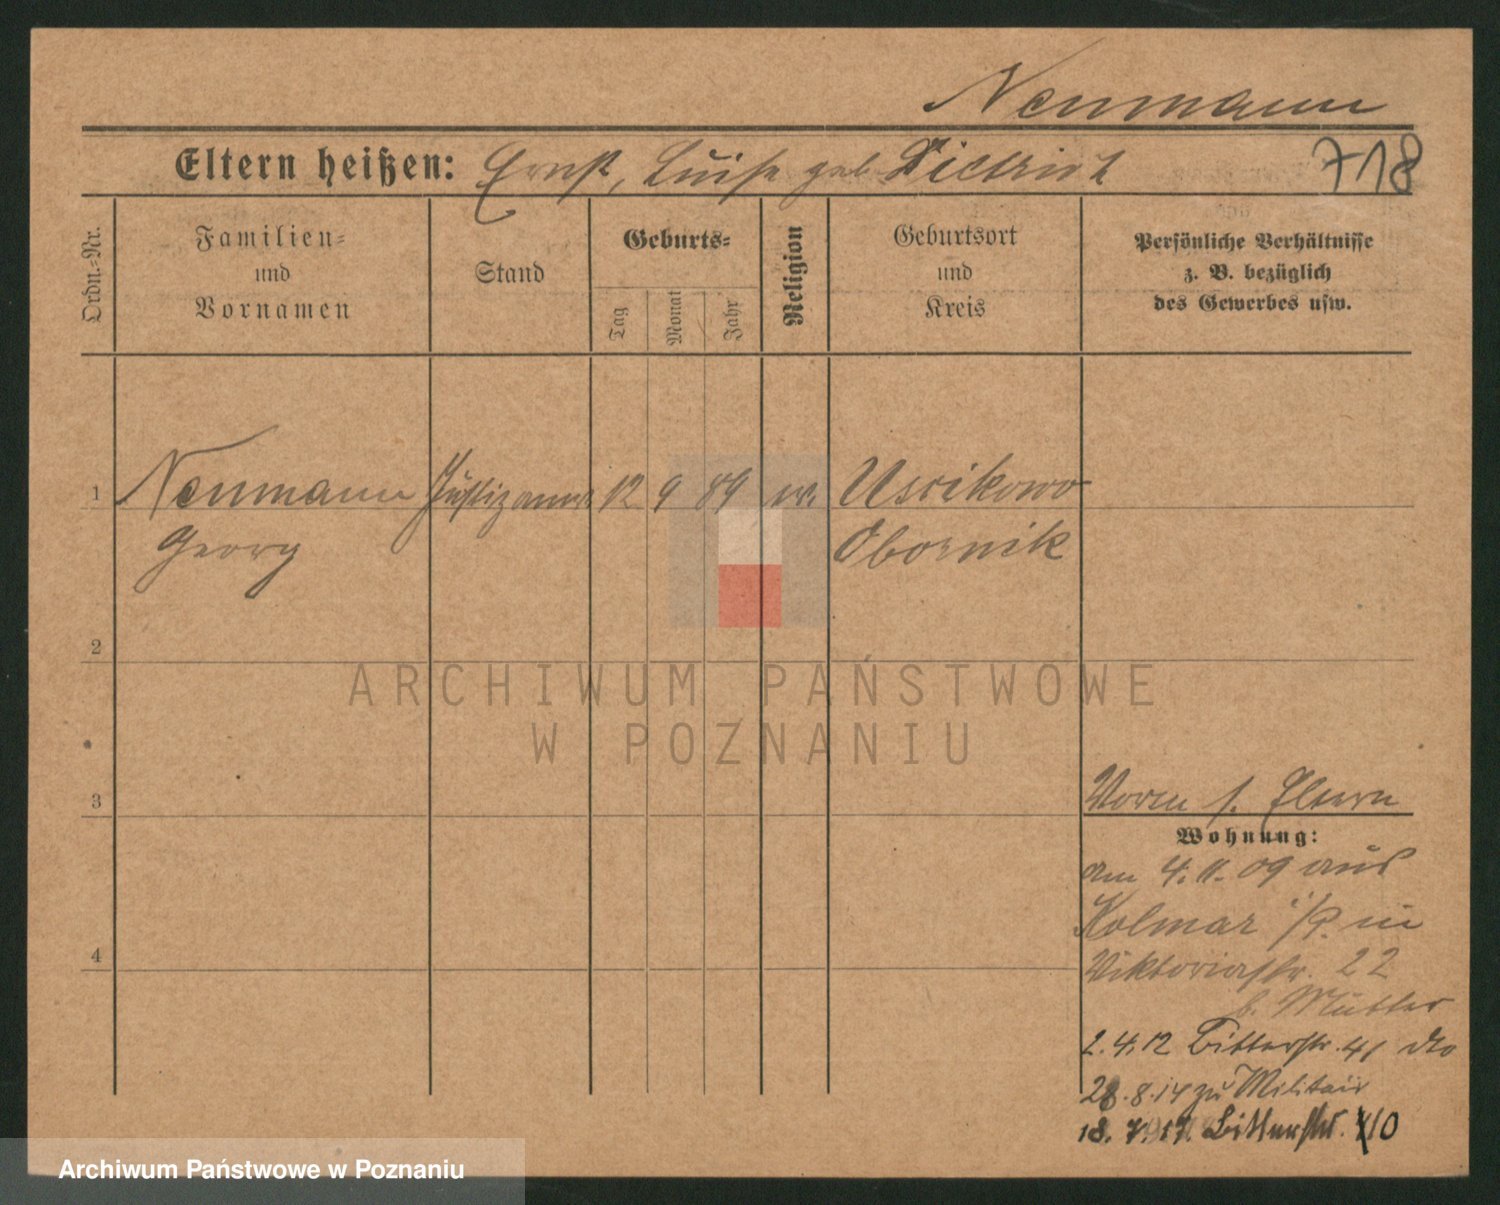 Neumann
Eltern heißen: Ernst, Luise geb. Dietrich
718
Ordn.-Nr.
Familien-
und
Vornamen
Stand
Geburts-
Tag
Monat
Jahr
Religion
Geburtsort
und
Kreis
Persönliche Verhältnisse
z. B. bezüglich
des Gewerbes usw.
1 Neumann Justizanw. 12 9 89 ev. Uscikowo
Georg Obornik
2
ARCHIWUM PAŃSTWOWE
W POZNANIU
3
Vorm s. Eltern
Wohnung:
am 4.11.09 aus
Kolmar i/P. in
4
Viktoriastr. 22
b. Mutter
2.4.12 Bitterstr. 41 dto
28.8.14 zu Militair
18.7.17 Bitterstr. 10
Archiwum Państwowe w Poznaniu